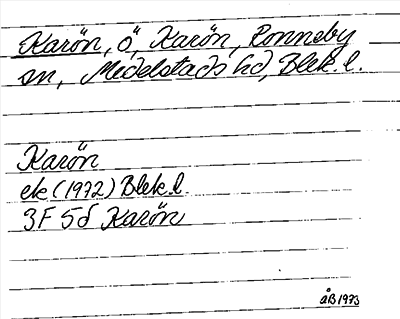 Karön, ö, Karön, Ronneby
sn, Medelstads hd, Blek. l.
Karön
ek (1972) Blek. l.
3F 5d Karön
åB 1973